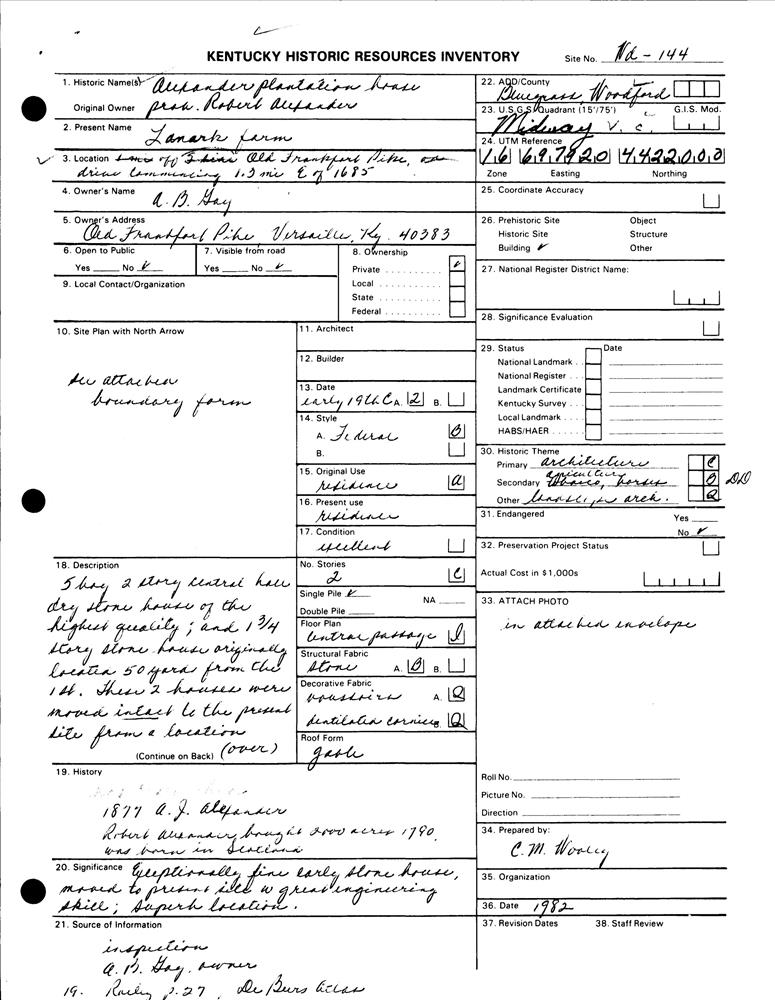 KENTUCKY HISTORIC RESOURCES INVENTORY
Site No. Wd - 144
1. Historic Name(s) Alexander plantation house
Original Owner prob. Robert Alexander
2. Present Name Lanark farm
3. Location Old Frankfort Pike, on
drive commencing 1.3 mi E of 1685
4. Owner's Name
A. B. Gay
5. Owner's Address
Old Frankfort Pike Versailles, Ky. 40383
6. Open to Public
Yes No ✓
7. Visible from road
Yes No ✓
8. Ownership
Private ✓
Local
State
Federal
9. Local Contact/Organization
10. Site Plan with North Arrow
see attached
boundary form
11. Architect
12. Builder
13. Date
early 19th C A. 2 B.
14. Style
A. Federal B
B.
15. Original Use
residence a
16. Present use
residence
17. Condition
excellent
No. Stories
2 C
Single Pile ✓
NA
Double Pile
Floor Plan
central passage
Structural Fabric
stone A. B B.
Decorative Fabric
voussoirs A. Q
dentilated cornice B. Q
Roof Form
gable
18. Description
5 bay 2 story central hall
dry stone house of the
highest quality; and 1 3/4
story stone house originally
located 50 yards from the
1st. These 2 houses were
moved intact to the present
site from a location
(Continue on Back) (over)
19. History
1877 A. J. Alexander
Robert Alexander bought 2000 acres 1790
was born in Scotland
20. Significance Exceptionally fine early stone house,
moved to present site w great engineering
skill; superb location.
21. Source of Information
inspection
A. B. Gay, owner
19. Railey p. 27, De Beers Atlas
22. ADD/County
Bluegrass, Woodford
23. U.S.G.S. Quadrant (15'/75') G.I.S. Mod.
Midway V. C.
24. UTM Reference
16 697920 4422000
Zone Easting Northing
25. Coordinate Accuracy
26. Prehistoric Site Object
Historic Site Structure
Building ✓ Other
27. National Register District Name:
28. Significance Evaluation
29. Status Date
National Landmark
National Register
Landmark Certificate
Kentucky Survey
Local Landmark
HABS/HAER
30. Historic Theme
Primary architecture C
agriculture
Secondary tobacco, horses B DD
Other landscape arch. Q
31. Endangered Yes
No ✓
32. Preservation Project Status
Actual Cost in $1,000s
33. ATTACH PHOTO
in attached envelope
Roll No.
Picture No.
Direction
34. Prepared by:
C. M. Wooley
35. Organization
36. Date 1982
37. Revision Dates 38. Staff Review